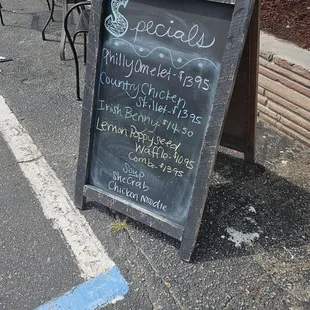 Specials
Philly Omelet - $13.95
Country Chicken
Skillet - $13.95
Irish Benny $14.50
Lemon Poppyseed
Waffle $10.95
Combo $13.95
Soup
She Crab
Chicken Noodle